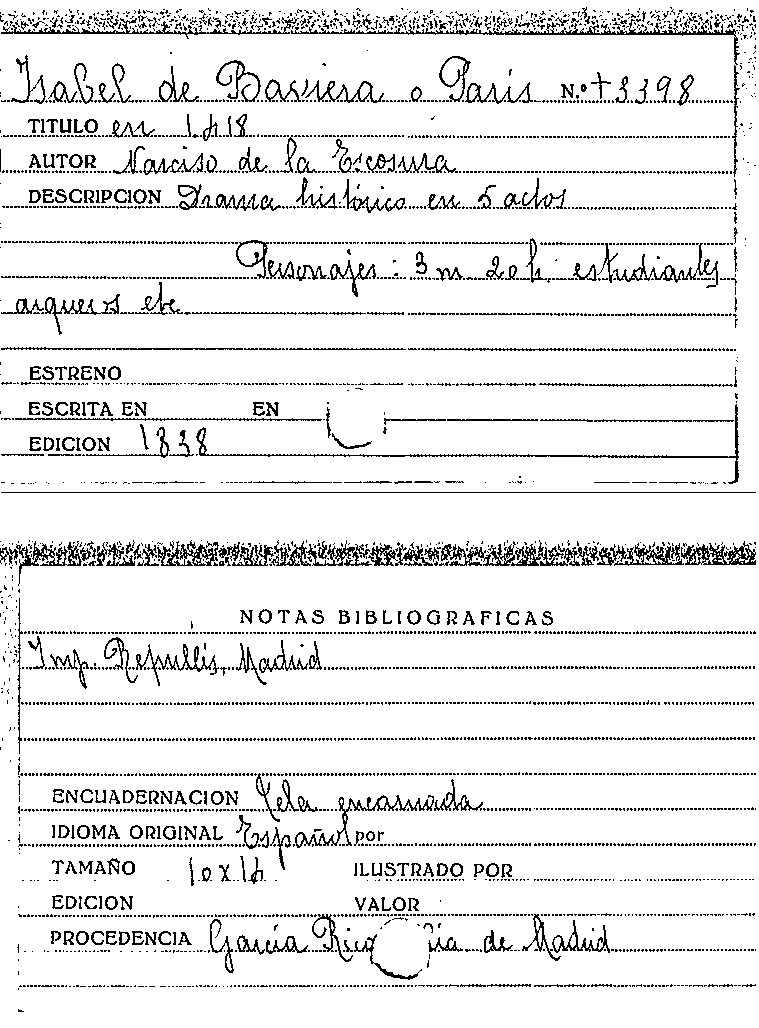 Isabel de Baviera o París N.º + 3398
TITULO en 1418
AUTOR Narciso de la Escosura
DESCRIPCION Drama histórico en 5 actos
Personajes: 3 m 20 h. estudiantes
arqueros etc.
ESTRENO
ESCRITA EN EN
EDICION 1838
NOTAS BIBLIOGRAFICAS
Imp. Repullés, Madrid
ENCUADERNACION Tela encarnada
IDIOMA ORIGINAL Español por
TAMAÑO 10x14 ILUSTRADO POR
EDICION VALOR
PROCEDENCIA García Rico ía de Madrid